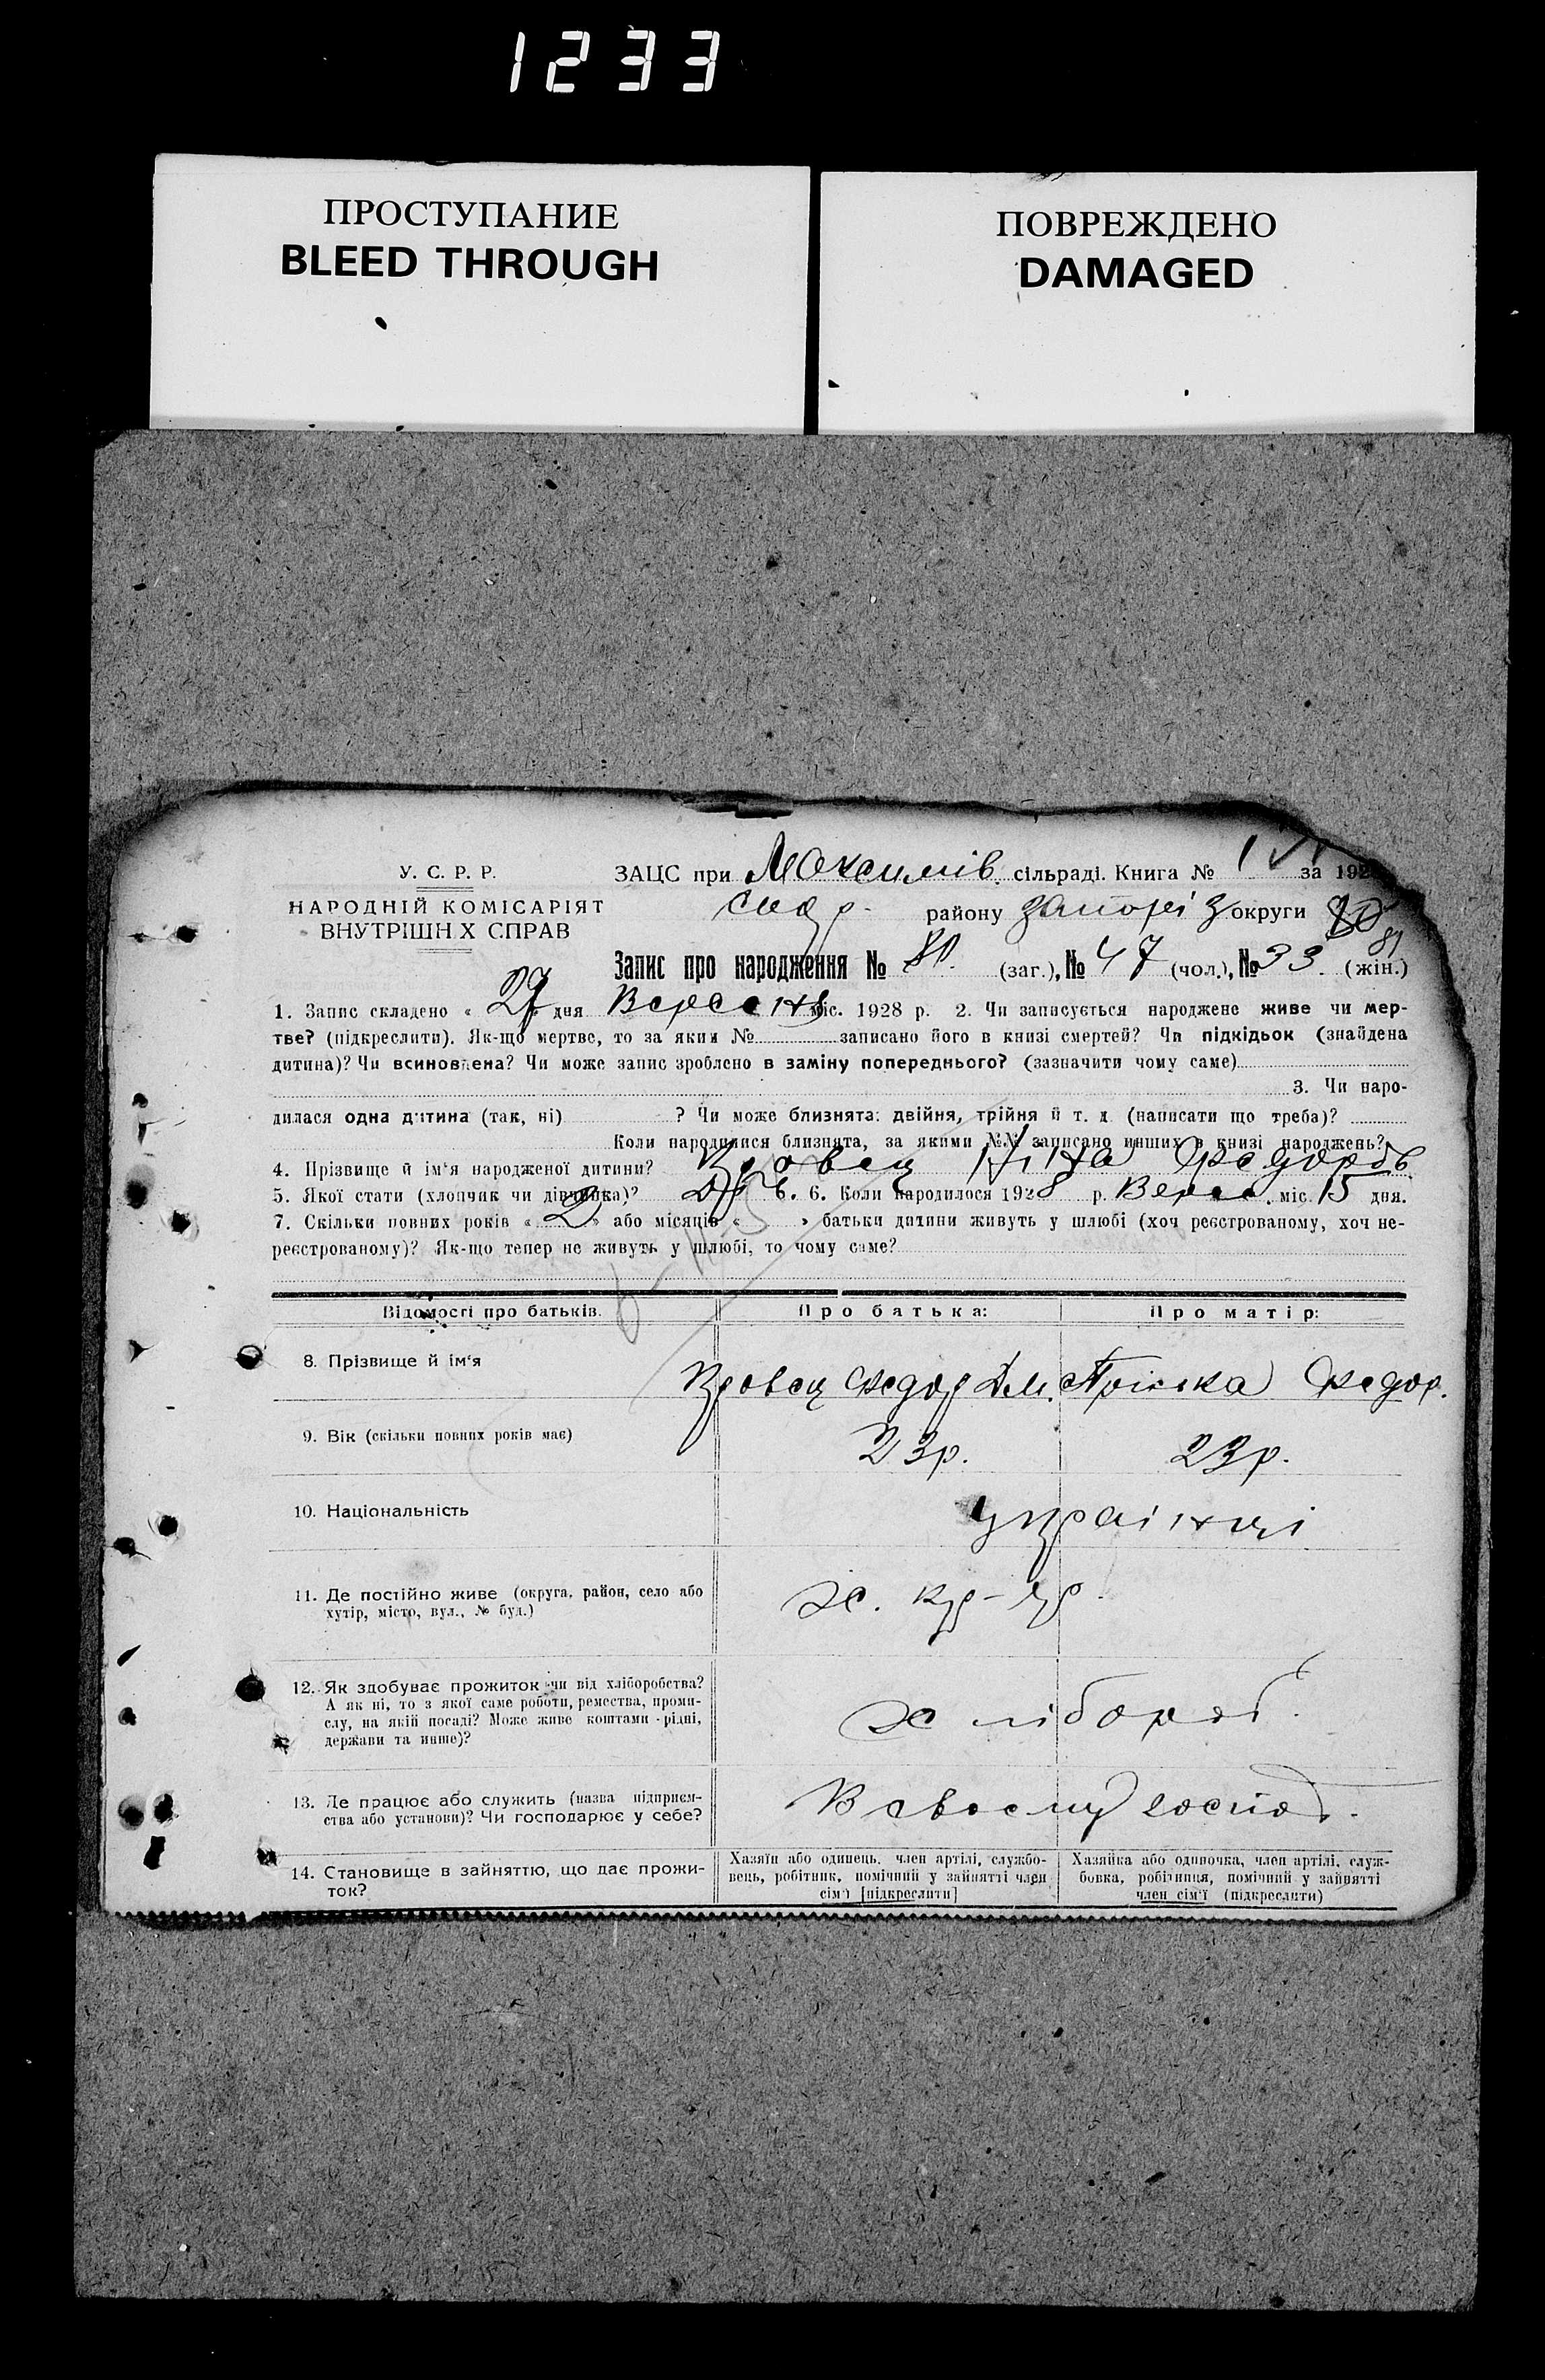 1233
ПРОСТУПАНИЕ
BLEED THROUGH
ПОВРЕЖДЕНО
DAMAGED
У. С. Р. Р.
НАРОДНІЙ КОМІСАРІЯТ
ВНУТРІШН Х СПРАВ
ЗАЦС при Максимів. сільраді. Книга № 1 за 192
району Запоріз округи
81
Запис про народження № 80. (заг.), № 47 (чол.), № 33. (жін.)
1. Запис складено « 27 » дня Вересня міс. 1928 р. 2. Чи записується народжене живе чи мер-
тве? (підкреслити). Як-що мертве, то за яким № записано його в книзі смертей? Чи підкідьок (знайдена
дитина)? Чи всиновлена? Чи може запис зроблено в заміну попереднього? (зазначити чому саме)
3. Чи наро-
дилася одна дитина (так, ні) ? Чи може близнята: двійня, трійня й т. д. (написати що треба)?
Коли народилися близнята, за якими №№ записано инших в книзі народжень?
4. Прізвище й ім'я народженої дитини? Ніна Федоров
5. Якої стати (хлопчик чи дівчинка)? Дів. 6. Коли народилося 1928 р. Верес. міс. 15 дня.
7. Скільки повних років « 2 » або місяців « » батьки дитини живуть у шлюбі (хоч реєстрованому, хоч не-
реєстрованому)? Як-що тепер не живуть у шлюбі, то чому саме?
Відомості про батьків. Про батька: Про матір:
8. Прізвище й ім'я Федор Дм. Пріська Федор.
9. Вік (скільки повних років має) 23р. 23р.
10. Національність українці
11. Де постійно живе (округа, район, село або
хутір, місто, вул., № буд.)
х.
12. Як здобуває прожиток чи від хліборобства?
А як ні, то з якої саме роботи, ремества, проми-
слу, на якій посаді? Може живе коштами рідні,
держави та инше)?
хлібороб.
13. Де працює або служить (назва підприєм-
ства або установи)? Чи господарює у себе?
В своему госпо
14. Становище в зайняттю, що дає прожи-
ток?
Хазяїн або одинець, член артілі, службо-
вець, робітник, помічний у зайнятті член
сім'ї [підкреслити]
Хазяйка або одиночка, член артілі, служ-
бовка, робітниця, помічний у зайнятті
член сім'ї (підкреслити)